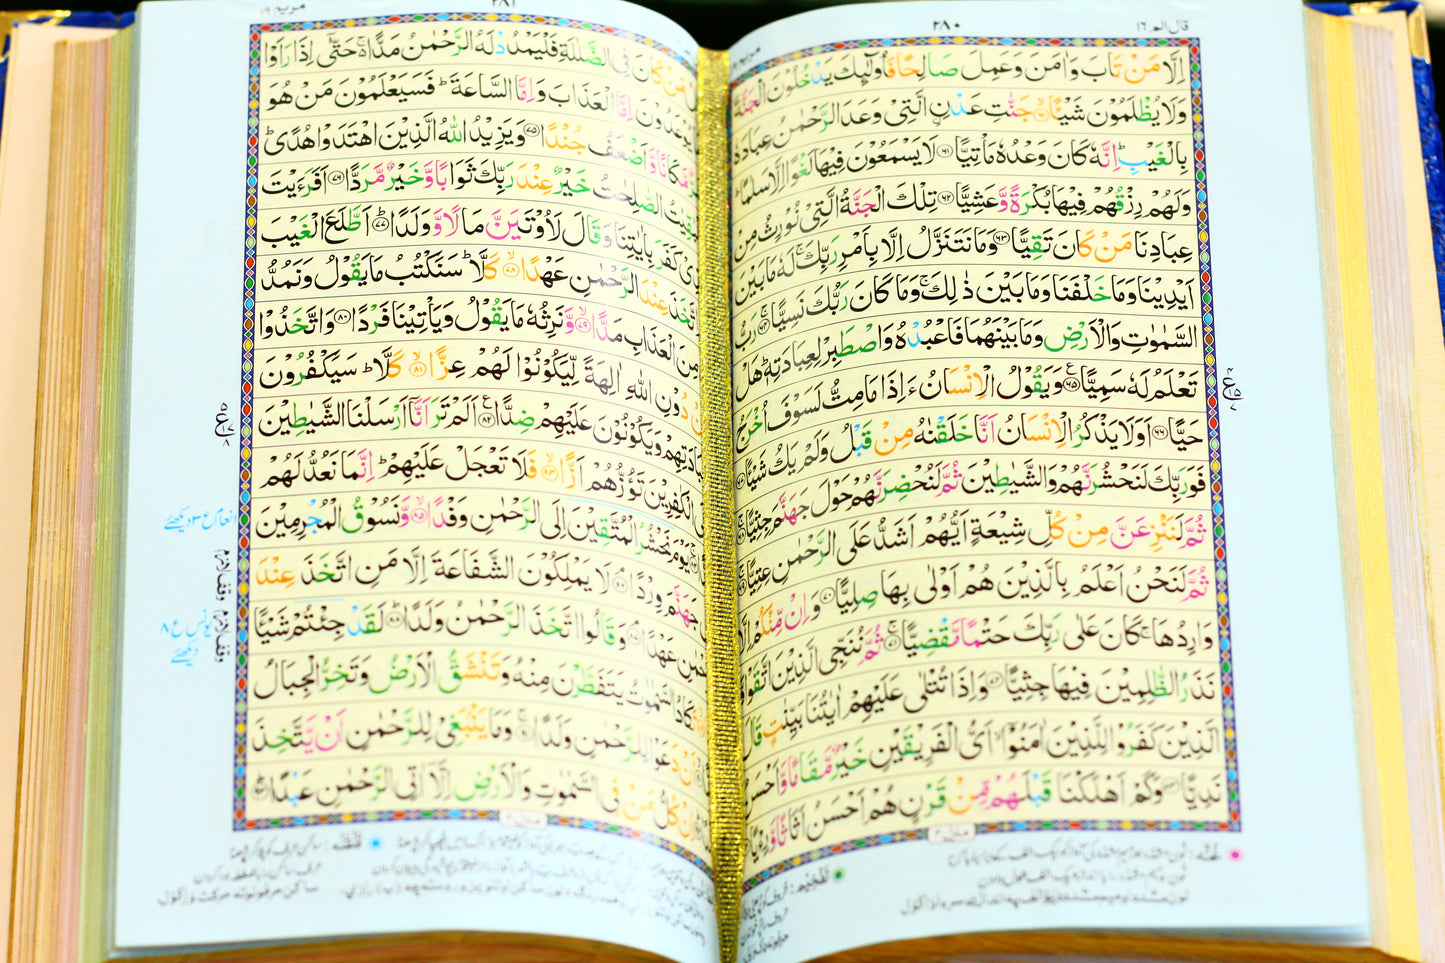 قال الم ١٦
٢٨٠
اِلَّا مَنْ تَابَ وَاٰمَنَ وَعَمِلَ صَالِحًا فَاُولٰٓئِكَ يَدْخُلُوْنَ الْجَنَّةَ
وَلَا يُظْلَمُوْنَ شَيْـًٔا ۙ۶۰ جَنّٰتِ عَدْنِ ِۨالَّتِيْ وَعَدَ الرَّحْمٰنُ عِبَادَهٗ
بِالْغَيْبِ ؕ اِنَّهٗ كَانَ وَعْدُهٗ مَاْتِيًّا ۶۱ لَا يَسْمَعُوْنَ فِيْهَا لَغْوًا اِلَّا سَلٰمًا ؕ
وَلَهُمْ رِزْقُهُمْ فِيْهَا بُكْرَةً وَّعَشِيًّا ۶۲ تِلْكَ الْجَنَّةُ الَّتِيْ نُوْرِثُ مِنْ
عِبَادِنَا مَنْ كَانَ تَقِيًّا ۶۳ وَمَا نَتَنَزَّلُ اِلَّا بِاَمْرِ رَبِّكَ ۚ لَهٗ مَا بَيْنَ
اَيْدِيْنَا وَمَا خَلْفَنَا وَمَا بَيْنَ ذٰلِكَ ۚ وَمَا كَانَ رَبُّكَ نَسِيًّا ۚ۶۴ رَبُّ
السَّمٰوٰتِ وَالْاَرْضِ وَمَا بَيْنَهُمَا فَاعْبُدْهُ وَاصْطَبِرْ لِعِبَادَتِهٖ ؕ هَلْ
تَعْلَمُ لَهٗ سَمِيًّا ۶۵ وَيَقُوْلُ الْاِنْسَانُ ءَاِذَا مَا مِتُّ لَسَوْفَ اُخْرَجُ
حَيًّا ۶۶ اَوَلَا يَذْكُرُ الْاِنْسَانُ اَنَّا خَلَقْنٰهُ مِنْ قَبْلُ وَلَمْ يَكُ شَيْـًٔا ۶۷
فَوَرَبِّكَ لَنَحْشُرَنَّهُمْ وَالشَّيٰطِيْنَ ثُمَّ لَنُحْضِرَنَّهُمْ حَوْلَ جَهَنَّمَ جِثِيًّا ۚ۶۸
ثُمَّ لَنَنْزِعَنَّ مِنْ كُلِّ شِيْعَةٍ اَيُّهُمْ اَشَدُّ عَلَى الرَّحْمٰنِ عِتِيًّا ۚ۶۹
ثُمَّ لَنَحْنُ اَعْلَمُ بِالَّذِيْنَ هُمْ اَوْلٰى بِهَا صِلِيًّا ۷۰ وَاِنْ مِّنْكُمْ اِلَّا
وَارِدُهَا ۚ كَانَ عَلٰى رَبِّكَ حَتْمًا مَّقْضِيًّا ۚ۷۱ ثُمَّ نُنَجِّي الَّذِيْنَ اتَّقَوْا وَّ
نَذَرُ الظّٰلِمِيْنَ فِيْهَا جِثِيًّا ۷۲ وَاِذَا تُتْلٰى عَلَيْهِمْ اٰيٰتُنَا بَيِّنٰتٍ قَالَ
الَّذِيْنَ كَفَرُوْا لِلَّذِيْنَ اٰمَنُوْٓا ۙ اَيُّ الْفَرِيْقَيْنِ خَيْرٌ مَّقَامًا وَّاَحْسَنُ
نَدِيًّا ۷۳ وَكَمْ اَهْلَكْنَا قَبْلَهُمْ مِّنْ قَرْنٍ هُمْ اَحْسَنُ اَثَاثًا وَّرِءْيًا
٢٨١
مريم ١٩
مَنْ كَانَ فِي الضَّلٰلَةِ فَلْيَمْدُدْ لَهُ الرَّحْمٰنُ مَدًّا ۚ حَتّٰٓى اِذَا رَاَوْا
يُوْعَدُوْنَ اِمَّا الْعَذَابَ وَاِمَّا السَّاعَةَ ؕ فَسَيَعْلَمُوْنَ مَنْ هُوَ
مَّكَانًا وَّاَضْعَفُ جُنْدًا ۷۵ وَيَزِيْدُ اللّٰهُ الَّذِيْنَ اهْتَدَوْا هُدًى ؕ
الصّٰلِحٰتُ خَيْرٌ عِنْدَ رَبِّكَ ثَوَابًا وَّخَيْرٌ مَّرَدًّا ۷۶ اَفَرَءَيْتَ
كَفَرَ بِاٰيٰتِنَا وَقَالَ لَاُوْتَيَنَّ مَالًا وَّوَلَدًا ؕ۷۷ اَطَّلَعَ الْغَيْبَ
اتَّخَذَ عِنْدَ الرَّحْمٰنِ عَهْدًا ۙ۷۸ كَلَّا ؕ سَنَكْتُبُ مَا يَقُوْلُ وَنَمُدُّ
مِنَ الْعَذَابِ مَدًّا ۙ۷۹ وَّنَرِثُهٗ مَا يَقُوْلُ وَيَاْتِيْنَا فَرْدًا ۸۰ وَاتَّخَذُوْا
دُوْنِ اللّٰهِ اٰلِهَةً لِّيَكُوْنُوْا لَهُمْ عِزًّا ۙ۸۱ كَلَّا ؕ سَيَكْفُرُوْنَ
وَيَكُوْنُوْنَ عَلَيْهِمْ ضِدًّا ۸۲ اَلَمْ تَرَ اَنَّآ اَرْسَلْنَا الشَّيٰطِيْنَ
الْكٰفِرِيْنَ تَؤُزُّهُمْ اَزًّا ۙ۸۳ فَلَا تَعْجَلْ عَلَيْهِمْ ؕ اِنَّمَا نَعُدُّ لَهُمْ
يَوْمَ نَحْشُرُ الْمُتَّقِيْنَ اِلَى الرَّحْمٰنِ وَفْدًا ۙ۸۵ وَّنَسُوْقُ الْمُجْرِمِيْنَ
جَهَنَّمَ وِرْدًا ۘ۸۶ لَا يَمْلِكُوْنَ الشَّفَاعَةَ اِلَّا مَنِ اتَّخَذَ عِنْدَ
عَهْدًا ۘ۸۷ وَقَالُوا اتَّخَذَ الرَّحْمٰنُ وَلَدًا ؕ۸۸ لَقَدْ جِئْتُمْ شَيْـًٔا
السَّمٰوٰتُ يَتَفَطَّرْنَ مِنْهُ وَتَنْشَقُّ الْاَرْضُ وَتَخِرُّ الْجِبَالُ
دَعَوْا لِلرَّحْمٰنِ وَلَدًا ۚ۹۱ وَمَا يَنْۢبَغِيْ لِلرَّحْمٰنِ اَنْ يَّتَّخِذَ
كُلُّ مَنْ فِي السَّمٰوٰتِ وَالْاَرْضِ اِلَّآ اٰتِي الرَّحْمٰنِ عَبْدًا ؕ۹۳
انعام ع ٣ دیکھئے
وقف لازم
یونس ع ٨ دیکھئے
وقف لازم